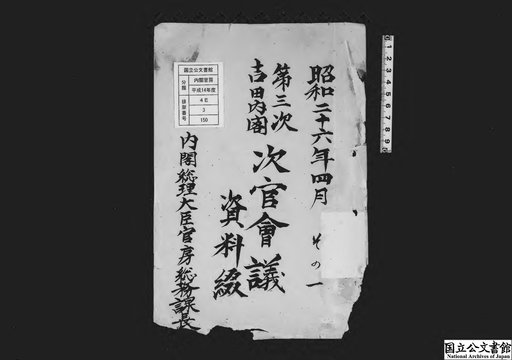 昭和二十六年四月
その一
第三次
吉田内閣
次官會議
資料綴
内閣総理大臣官房総務課長
国立公文書館
分類
内閣官房
平成14年度
4E
排架番号
3
159
1 2 3 4 5 6 7 8 9
国立公文書館
National Archives of Japan